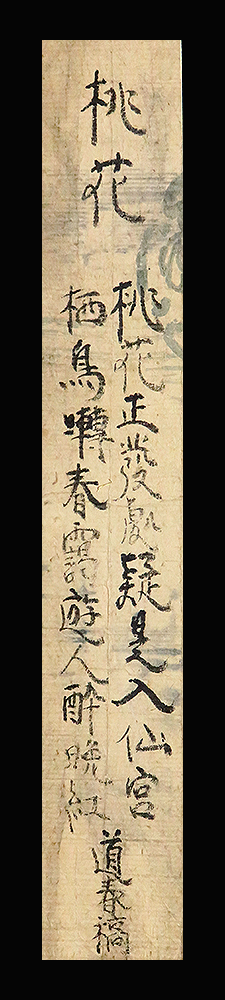 桃花
桃花正發處疑是入仙宮
栖鳥囀春靄遊人酔晩紅
道春稿